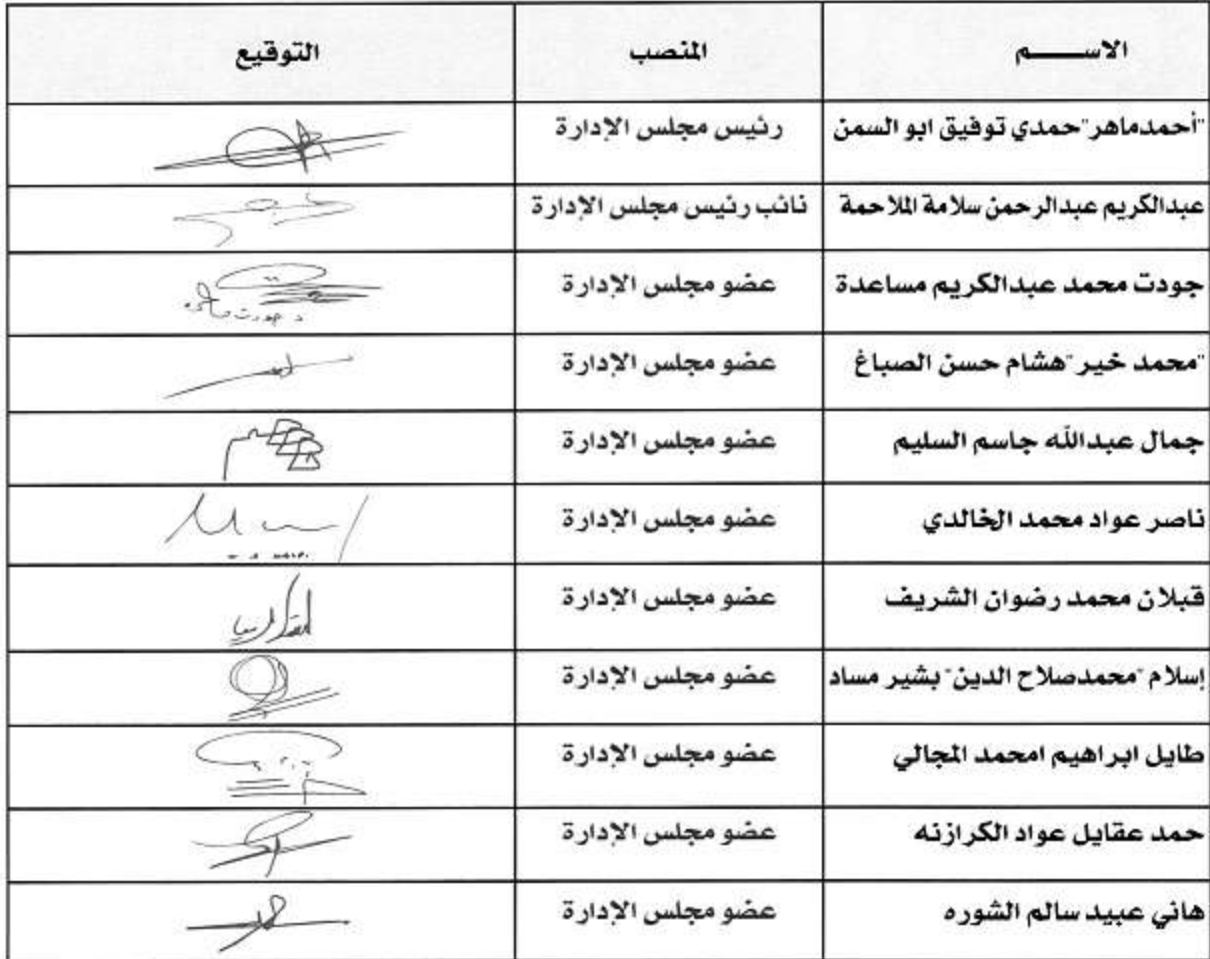 الاســـــم المنصب التوقيع
"أحمدماهر"حمدي توفيق ابو السمن رئيس مجلس الإدارة
عبدالكريم عبدالرحمن سلامة الملاحمة نائب رئيس مجلس الإدارة
جودت محمد عبدالكريم مساعدة عضو مجلس الإدارة
"محمد خير"هشام حسن الصباغ عضو مجلس الإدارة
جمال عبدالله جاسم السليم عضو مجلس الإدارة
ناصر عواد محمد الخالدي عضو مجلس الإدارة
قبلان محمد رضوان الشريف عضو مجلس الإدارة
إسلام "محمدصلاح الدين" بشير مساد عضو مجلس الإدارة
طايل ابراهيم امحمد المجالي عضو مجلس الإدارة
حمد عقايل عواد الكرازنه عضو مجلس الإدارة
هاني عبيد سالم الشوره عضو مجلس الإدارة